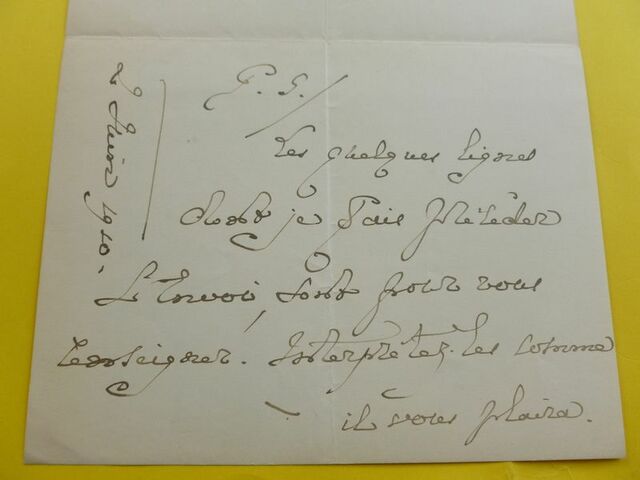 2 Juin 1910.
P. S.
Les quelques lignes
dont je fais précéder
l'Envoi, sont pour vous
renseigner. Interprétez-les comme
il vous plaira.